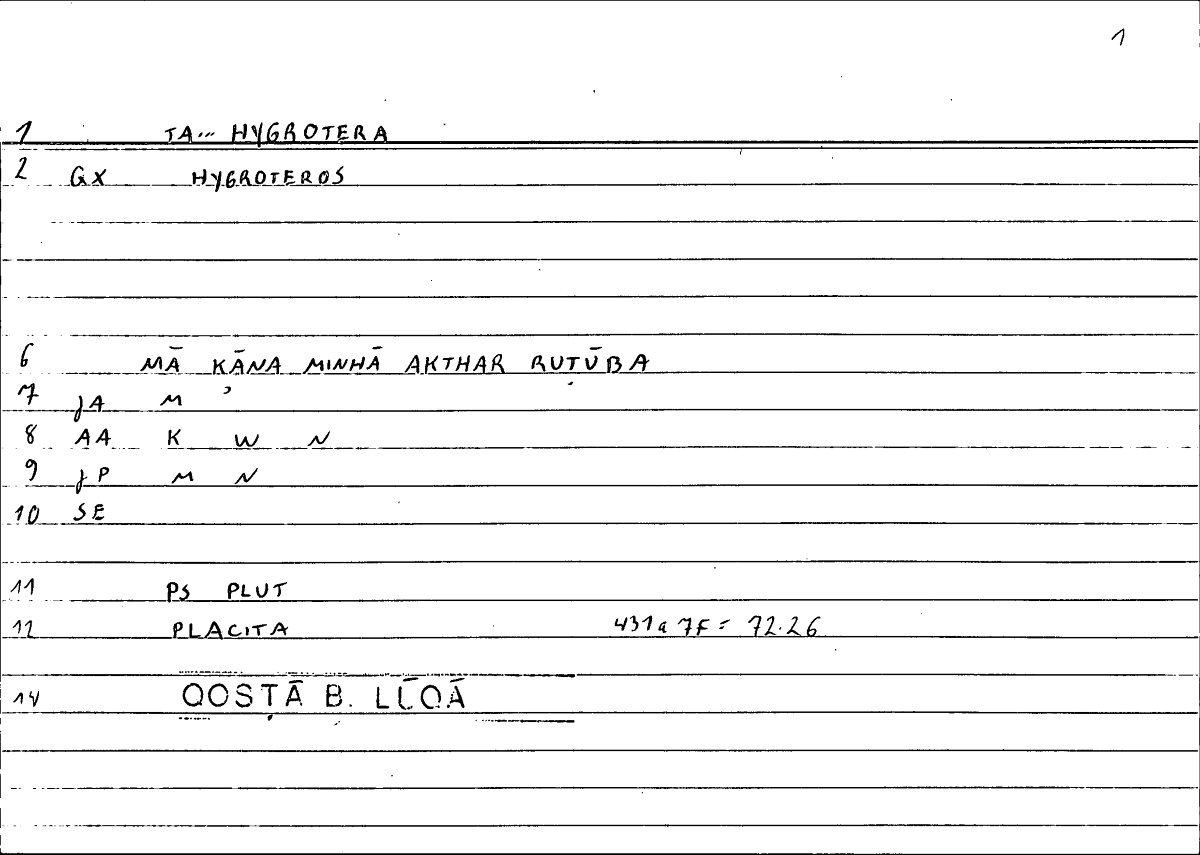 1
1 TA... HYGROTERA
2 GX HYGROTEROS
6 MĀ KĀNA MINHĀ AKTHAR RUṬŪBA
7 JA M ʾ
8 AA K W N
9 JP M N
10 SE
11 PS PLUT
12 PLACITA 431a 7F = 72.26
14 QOSṬĀ B. LŪQĀ